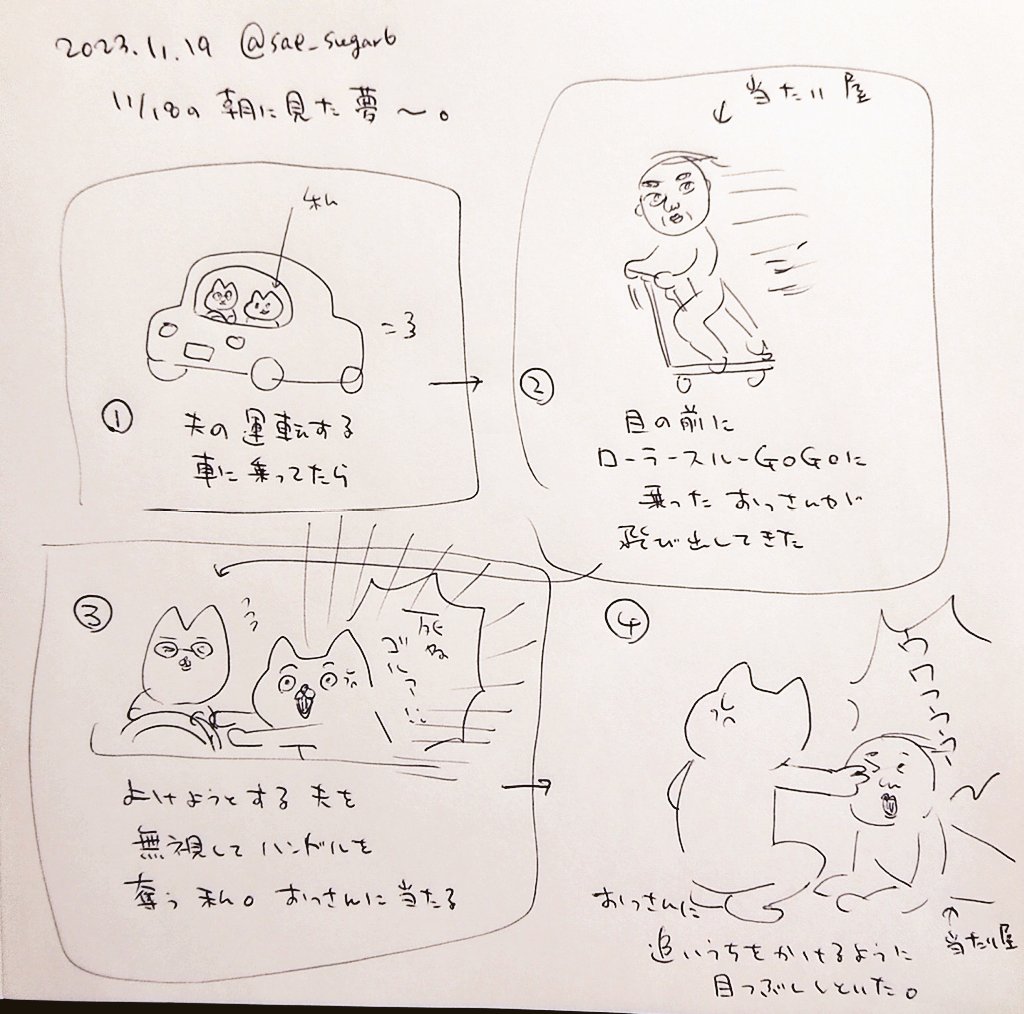 2023.11.19 @sae_sugar6
11/18の朝に見た夢〜。
私
=3
①
夫の運転する
車に乗ってたら
当たり屋
②
目の前に
ローラースルーGOGOに
乗った おっさんが
飛び出してきた
③
死ね
ゴルァー!!
よけようとする 夫を
無視して ハンドルを
奪う 私。おっさんに当たる
④
おっさんに
追いうちをかけるように
目つぶししといた。
当たり屋